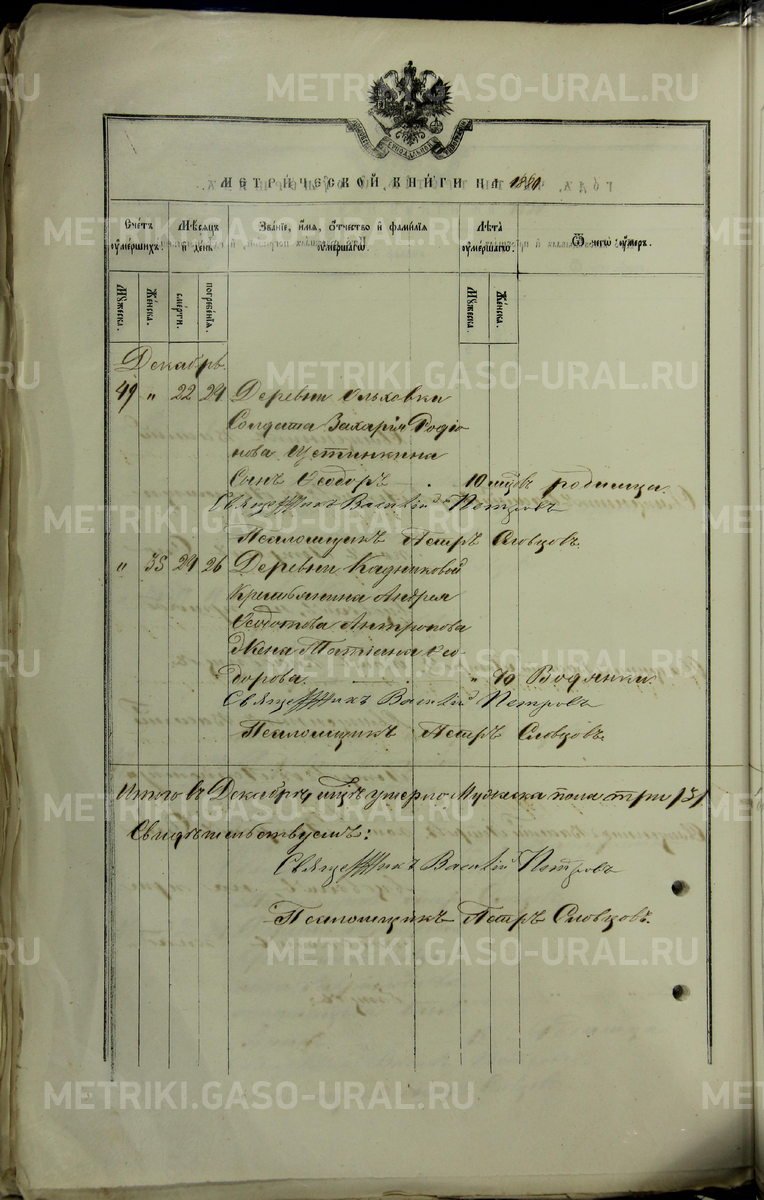 МЕТРИЧЕСКОЙ КНИГИ НА 1880.
Счетъ умершихъ.
Мѣсяцъ и день.
Званіе, имя, отчество и фамилія умершаго.
Лѣта умершаго.
Ѿ чего умеръ.
Мужеска.
Женска.
смерти.
погребенія.
Мужеска.
Женска.
Декабрь.
49 " 22 24 Деревни Ольховки
Солдата Захарія Родіо
нова Щетинкина
Сынъ Ѳеодоръ 10 мцвъ родимца.
Священникъ Василій Петровъ
Псаломщикъ Петръ Словцовъ.
" 35 24 26 Деревни Кадниковой
Крестьянина Андрея
Ѳедотова Антропова
Жена Татіана Ѳео
дорова. " 49 Водянки
Священникъ Василій Петровъ
Псаломщикъ Петръ Словцовъ.
Итого въ Декабрѣ мцѣ умерло Мужеска пола три /3/
Свидѣтельствуемъ:
Священникъ Василій Петровъ
Псаломщикъ Петръ Словцовъ.
METRIKI.GASO-URAL.RU